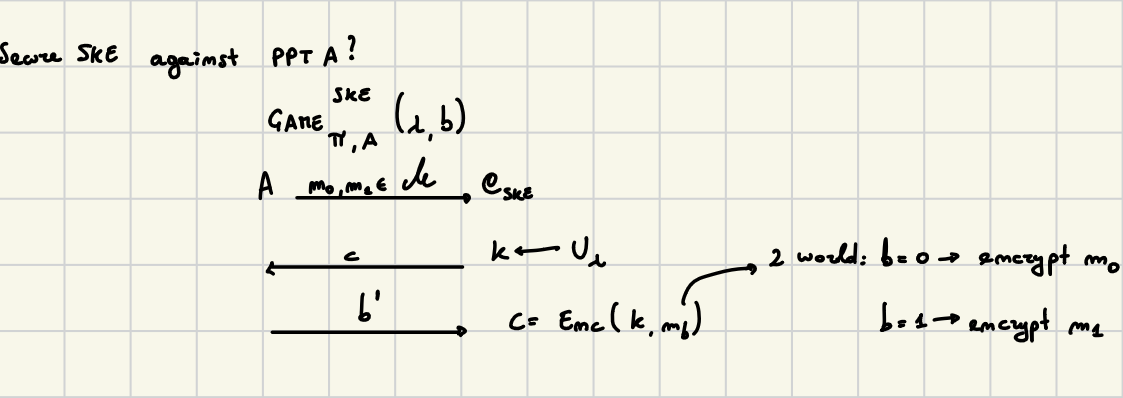 Secure SKE against PPT A?
GAME^{SKE}_{Π,A} (λ, b)
A m₀, m₁ ∈ ℳ → C_{SKE}
← c k ← U_λ
b' → C = Enc(k, m_b) → 2 world: b = 0 → encrypt m₀
b = 1 → encrypt m₁